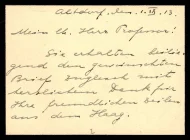 Altdorf, den 1. IX. 13.
Mein lb. Herr Professor!
Sie erhalten beilie-
gend den gewünschten
Brief zugleich mit
herzlichem Dank für
Ihre freundlichen Zeilen
aus dem Haag.